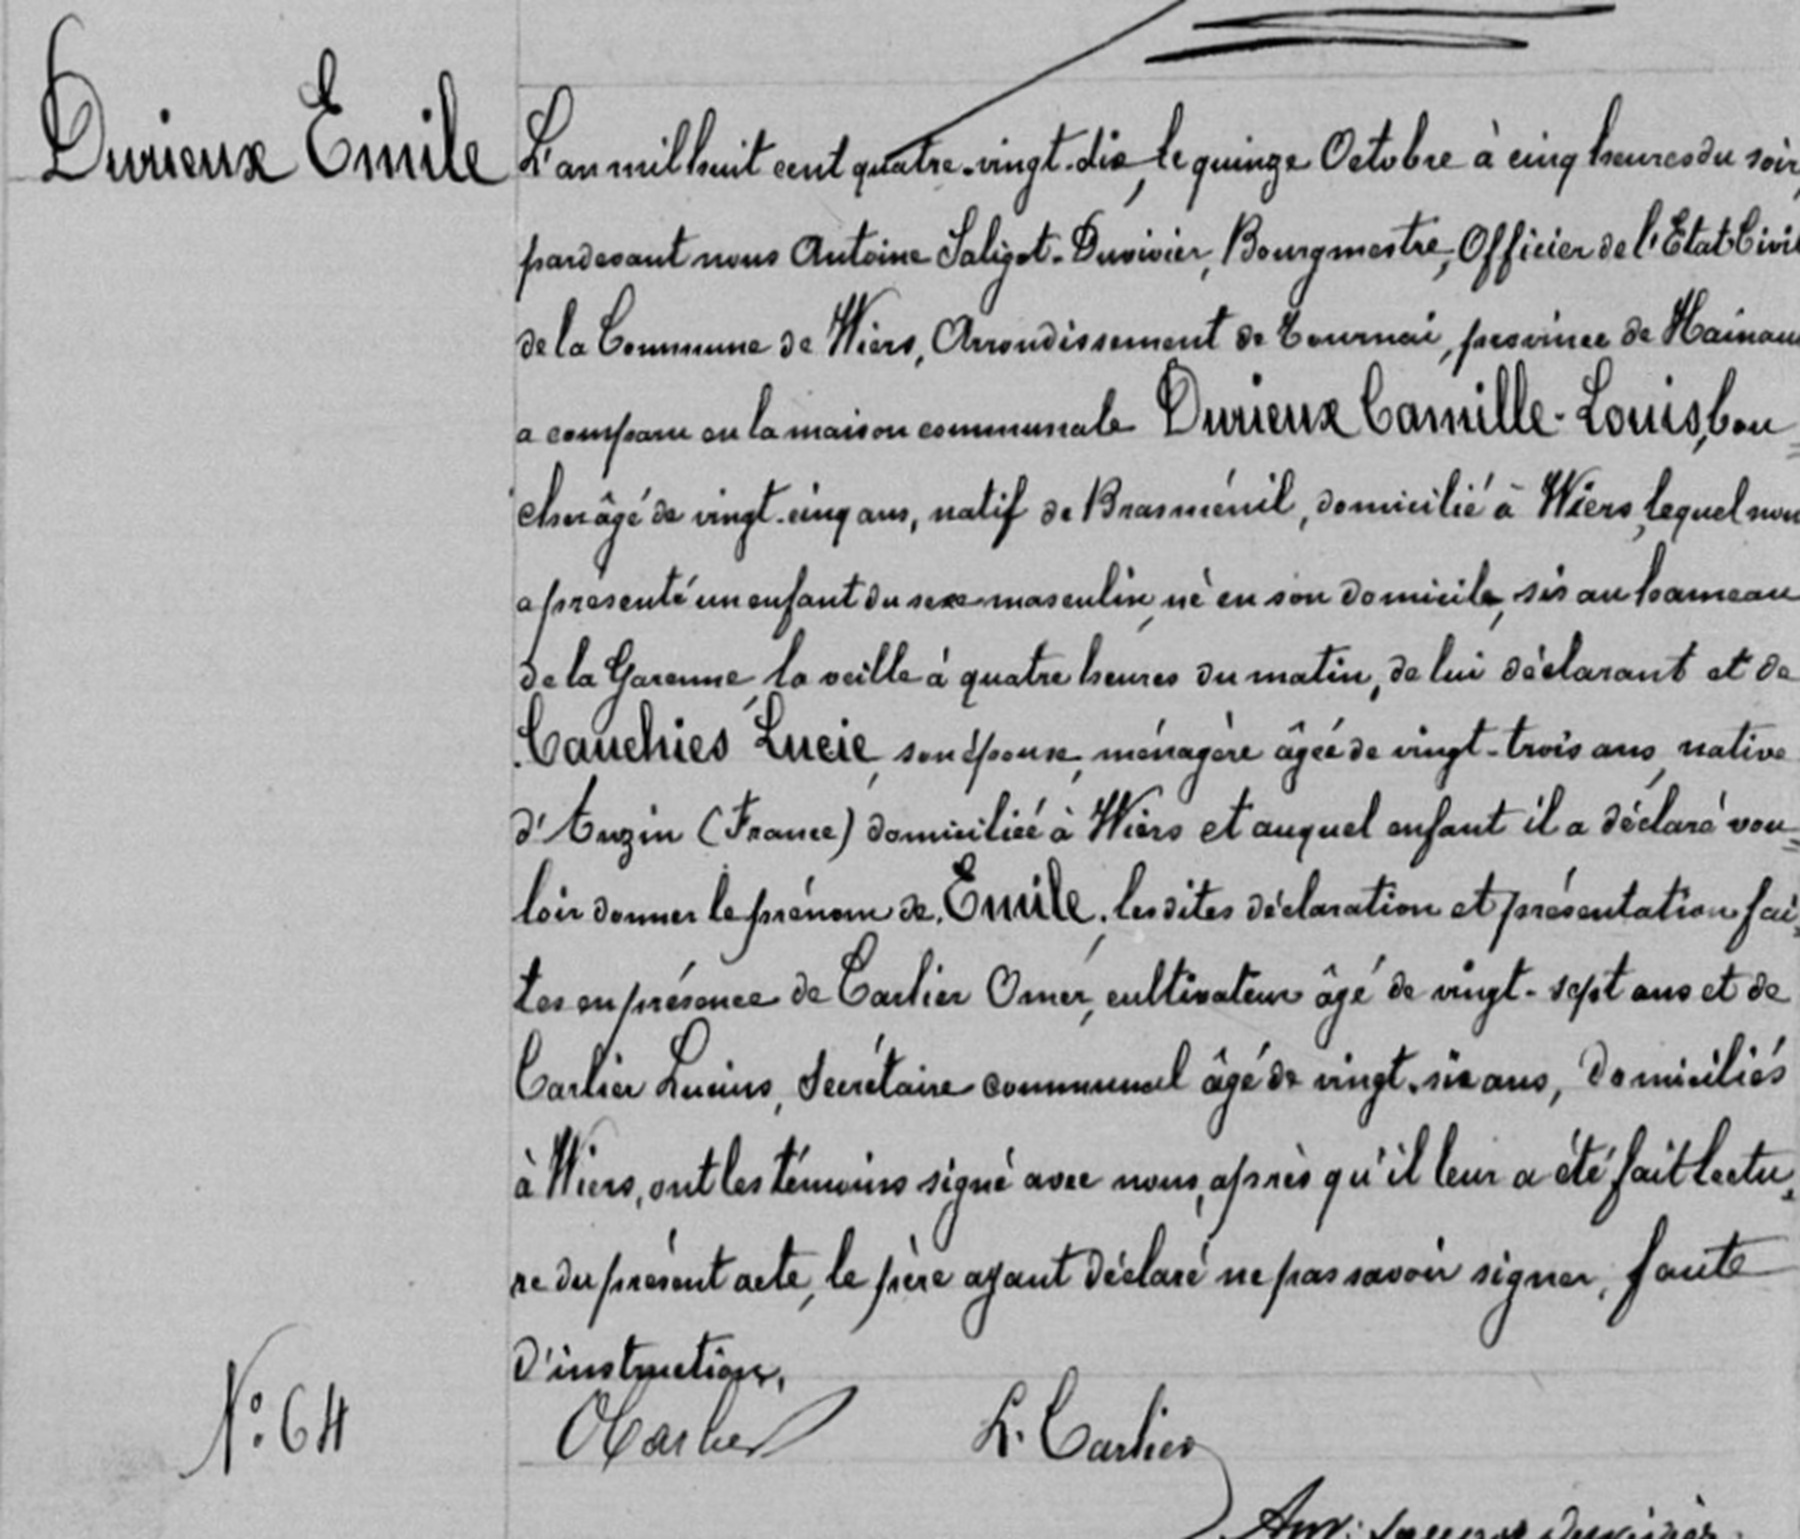 Durieux Emile
L'an mil huit cent quatre-vingt-dix, le quinze Octobre à cinq heures du soir,
pardevant nous Antoine Saligot-Duvivier, Bourgmestre, Officier de l'Etat Civil
de la Commune de Wiers, Arrondissement de Tournai, province de Hainau
a comparu en la maison communale Durieux Camille-Louis, bou=
cher âgé de vingt-cinq ans, natif de Brasménil, domicilié à Wiers, lequel nou
a présenté un enfant du sexe masculin, né en son domicile, sis au hameau
de la Garenne, la veille à quatre heures du matin, de lui déclarant et de
Cauchies Lucie, son épouse, ménagère âgée de vingt-trois ans, native
d'Anzin (France) domiciliée à Wiers et auquel enfant il a déclaré vou=
loir donner le prénom de Emile, les dites déclaration et présentation fai=
tes en présence de Carlier Omer, cultivateur âgé de vingt-sept ans et de
Carlier Lucius, Secrétaire communal âgé de vingt-six ans, domiciliés
à Wiers, ont les témoins signé avec nous, après qu'il leur a été fait lectu=
re du présent acte, le père ayant déclaré ne pas savoir signer, faute
d'instruction.
N.o 64
O Carlier
L. Carlier